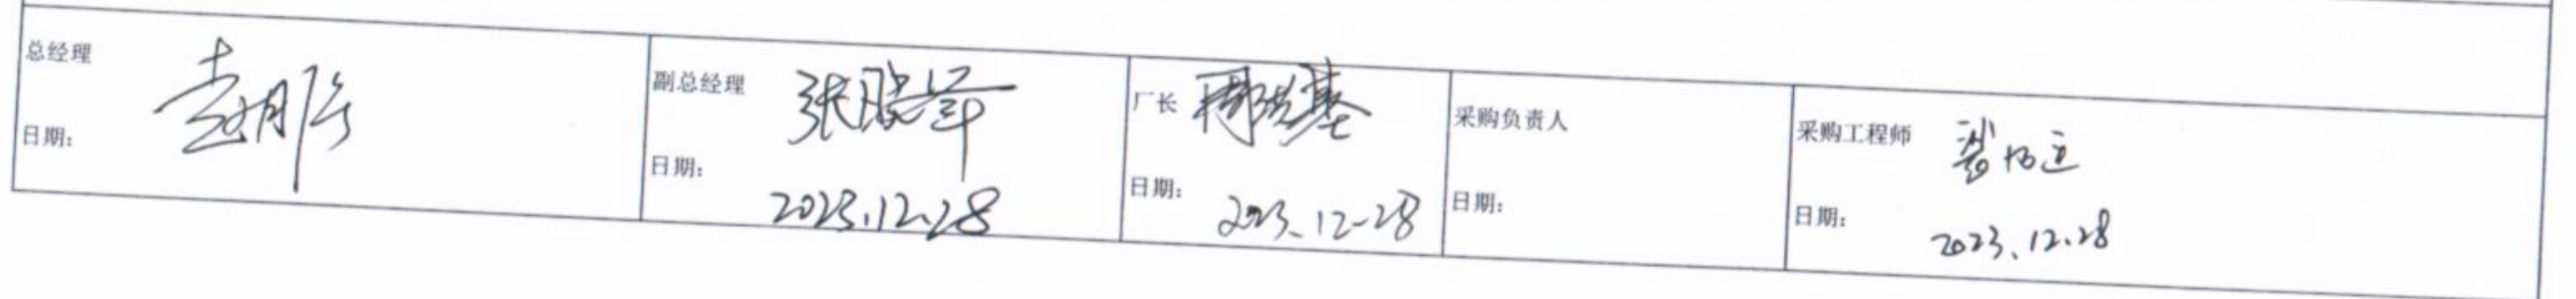 总经理
日期：
副总经理 张晓军
日期：
2023.12.28
厂长
日期：
2023.12-28
采购负责人
日期：
采购工程师
日期：
2023.12.28